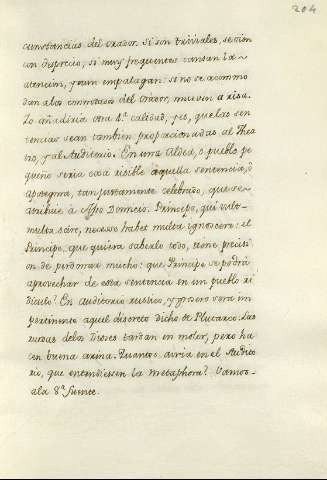 204
cunstancias del orador. Si son triviales, se oien
con desprecio, si muy frequentes cansan la a-
tencion, y aun empalagan: si no se acommo
dan a las connotados del Orador, mueven a risa.
Yo añadiria otra 4.ª calidad, y es, que las sen
tencias sean tambien proporcionadas al Thea
tro, y al Auditorio. En una Aldea, o pueblo pe
queño seria cosa risible aquella sentencia, o
apotegma, tan justamente celebrado, que se
atribuie à Afro Domicio. Principi, qui vult
multa scire, necesse habet multa ignoscere: el
Principe que quiera saberlo todo, tiene precisi
on de perdonar mucho: que Principe se podrà
aprovechar de esta sentencia en un pueblo ri
diculo? En auditorio rustico, y grosero sera im
pertinente aquel discreto dicho de Plutarco: Las
ruedas de los Dioses tardan en moler, pero ha
cen buena arina. Quantos avria en el Audito
rio, que entendiessen la metaphora? Vamos
a la 8.ª fuente.